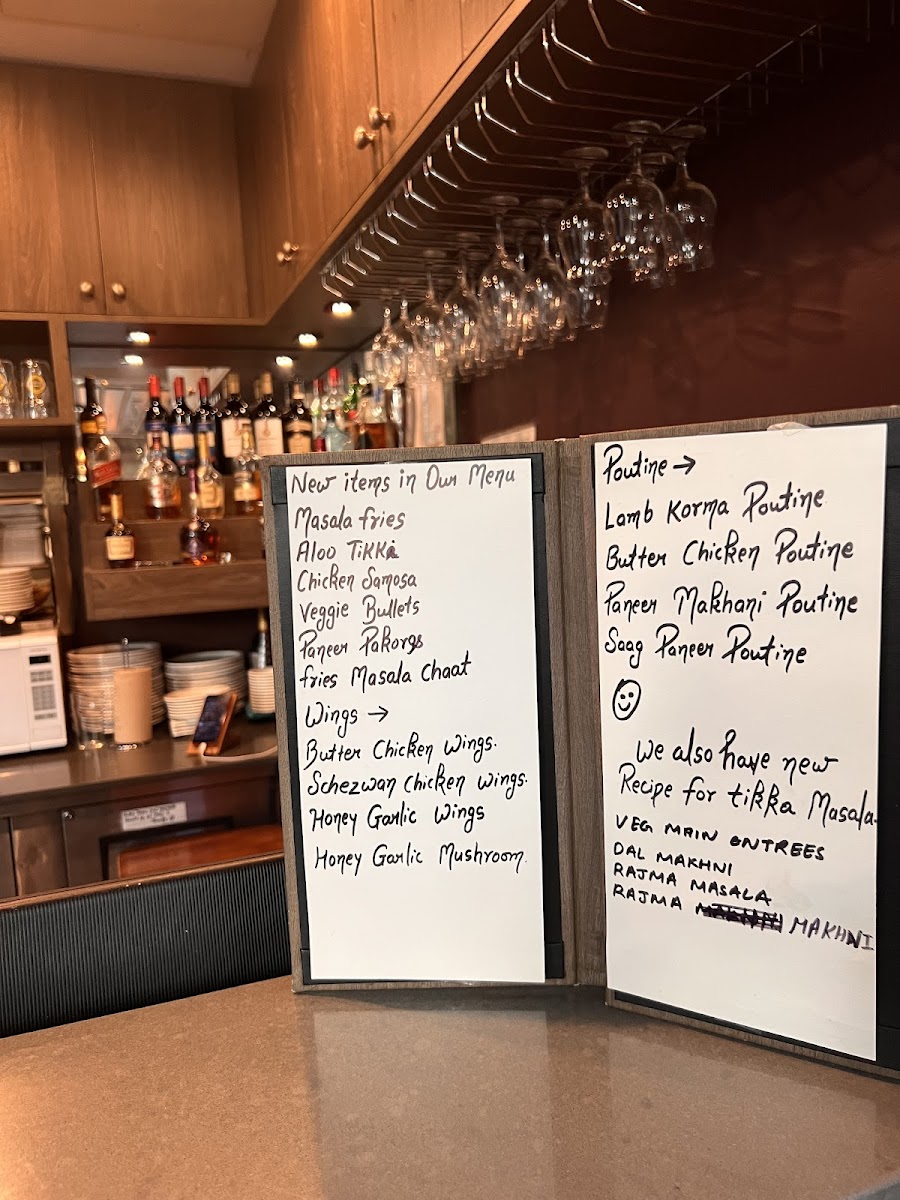 New items in Our Menu
Masala fries
Aloo Tikki
Chicken Samosa
Veggie Bullets
Paneer Pakoras
fries Masala Chaat
Wings →
Butter Chicken Wings.
Schezwan Chicken Wings.
Honey Garlic Wings
Honey Garlic Mushroom.
Poutine →
Lamb Korma Poutine
Butter Chicken Poutine
Paneer Makhani Poutine
Saag Paneer Poutine
We also have new
Recipe for tikka Masala.
VEG MAIN ENTREES
DAL MAKHNI
RAJMA MASALA
RAJMA MAKHNI